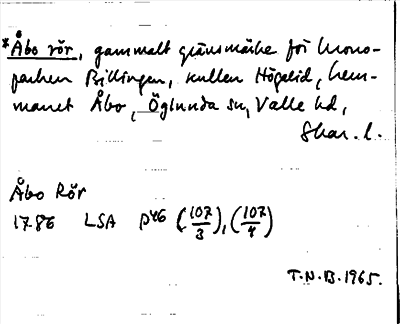 *Åbo rör, gammalt gränsmärke för krono-
parken Billingen, kullen Högelid, hem-
manet Åbo, Öglunda sn, Valle hd,
Skar. l.
Åbo Rör
1786 LSA P46 (107/3), (107/4)
T.N.B. 1965.